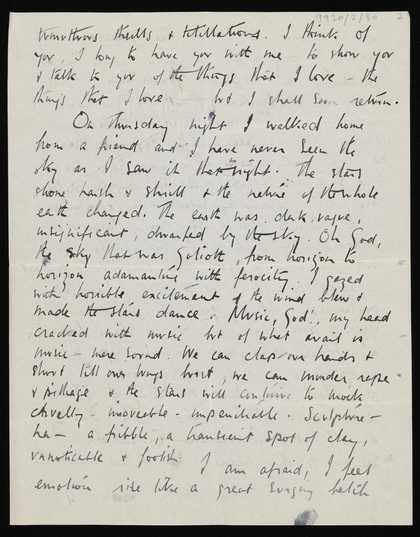 9920/2/80 2
thrills & titillations. I think of
you, I long to have you with me to show you
& talk to you of the things that I love – the
things that I love but I shall soon return.
On Thursday night I walked home
from a friend and I have never seen the
sky as I saw it that night. The stars
shone harsh & shrill & the nature of the whole
earth changed. The earth was dark, vague,
insignificant, dwarfed by the sky. Oh God,
the sky that was Goliath, from horizon to
horizon adamantine with ferocity. I gazed
with horrible excitement & the wind blew &
made the stars dance. Music, God!, my head
cracked with music but of what avail is
music – mere sound. We can clap our hands &
shout till our lungs burst, we can murder, rape
& pillage & the stars will continue to mock
cruelly – immoveable – impenetrable. Sculpture –
ha – a pibble, a transient spot of clay,
unnoticable & foolish. I am afraid, I feel
emotion rise like a great surging